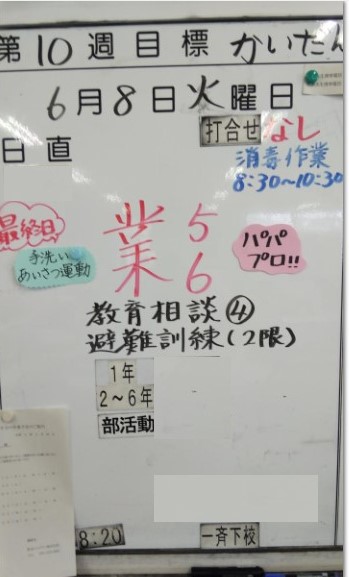 第10週目標 かいたん
6月8日火曜日
打合せなし
日直
消毒作業
8:30~10:30
最終日
手洗い
あいさつ運動
業 5
6
パパ
プロ!!
教育相談④
避難訓練(2限)
1年
2~6年
部活動
8:20
一斉下校